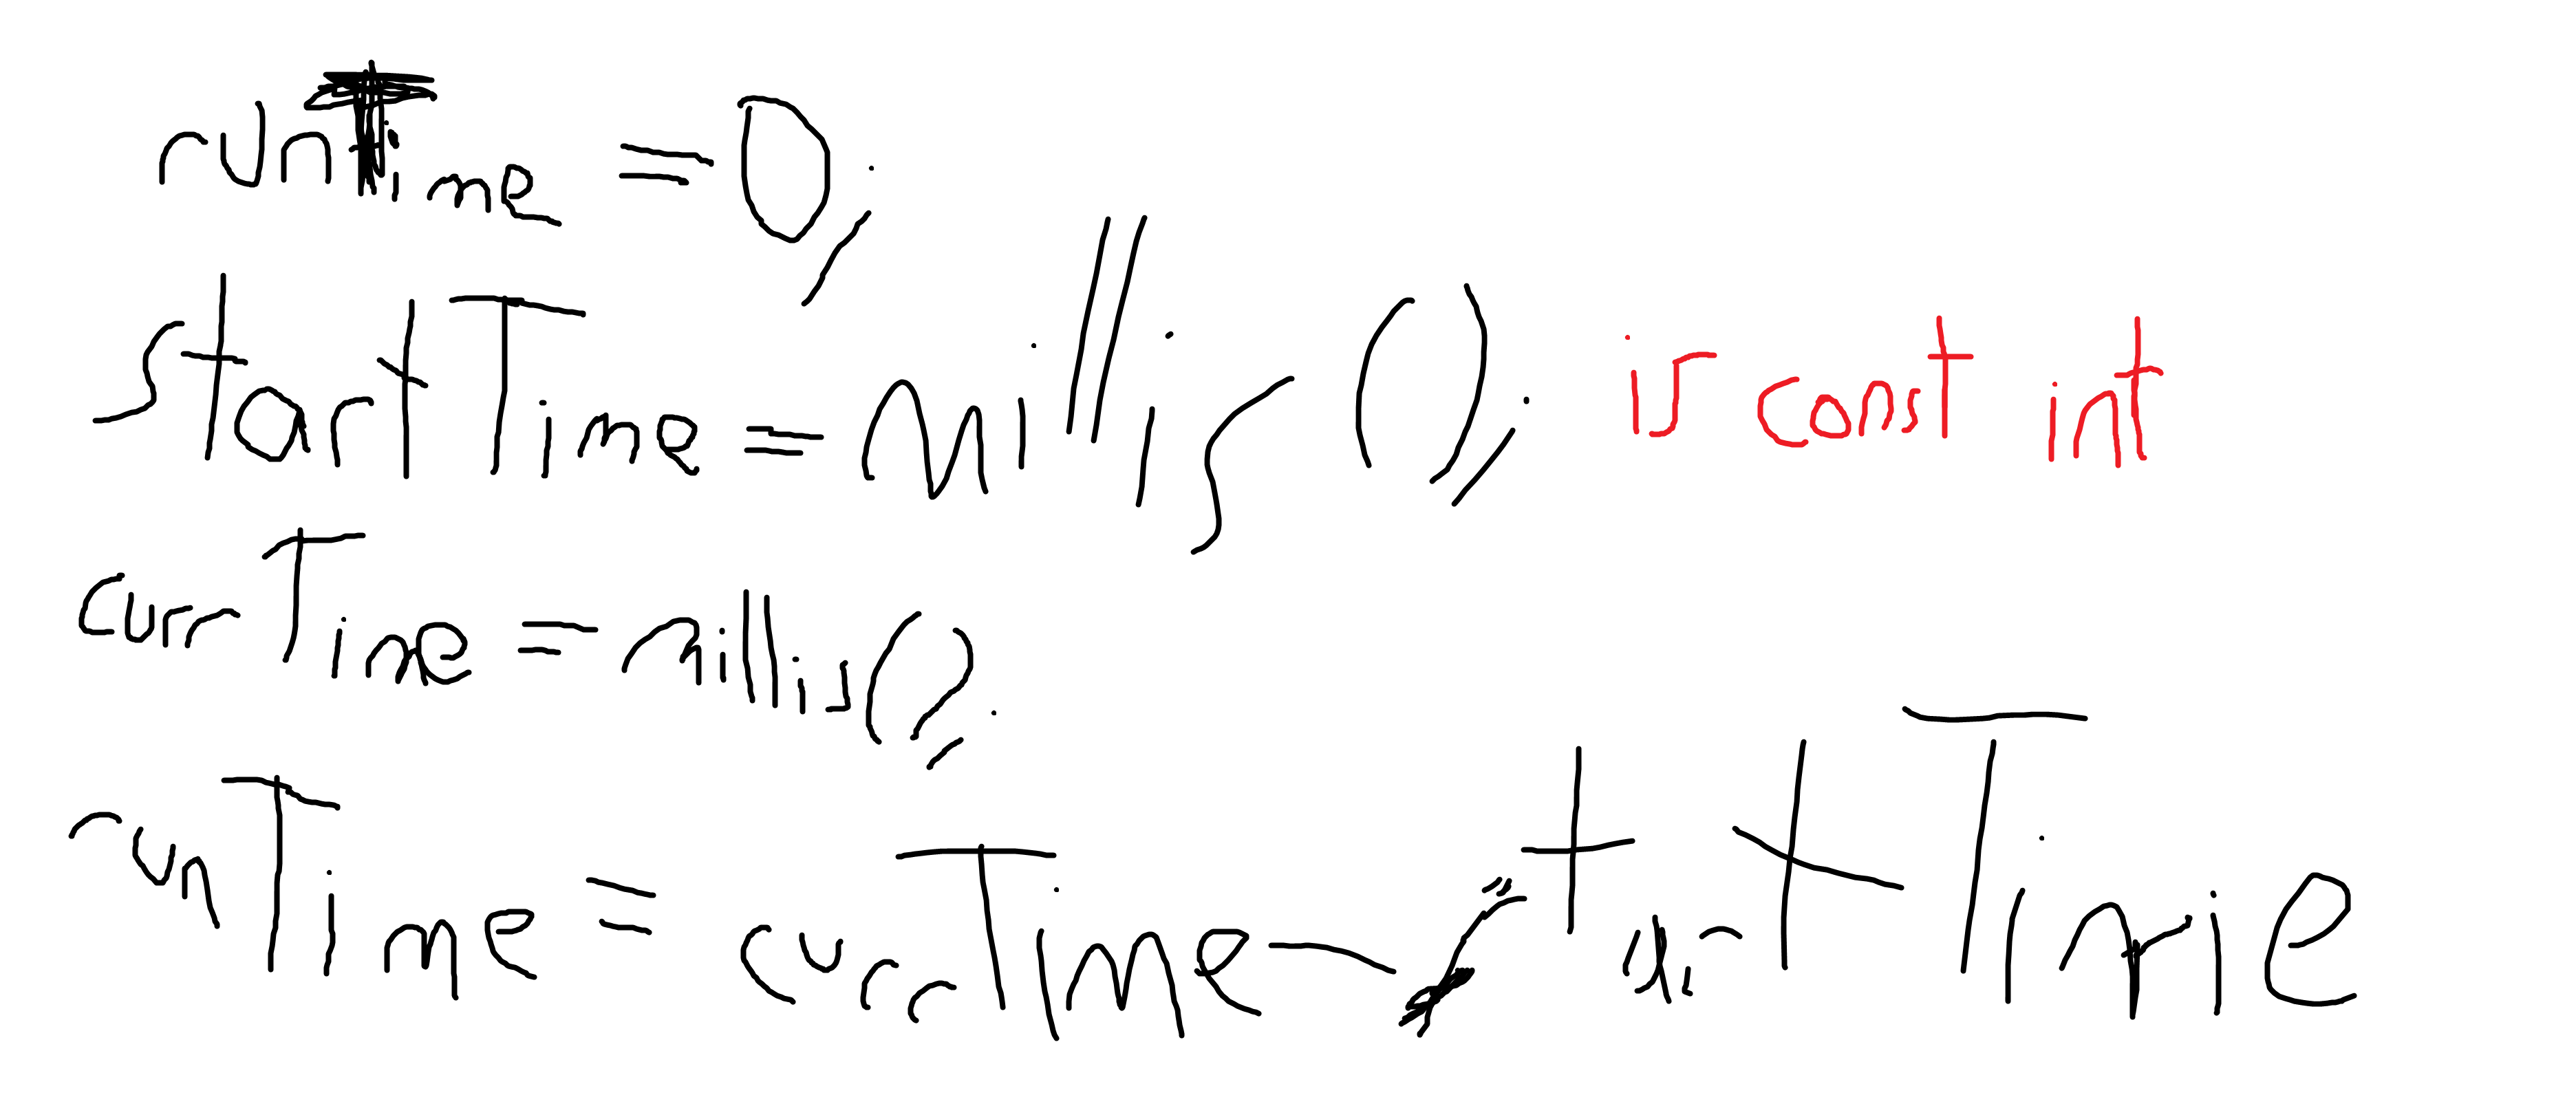 runTime = 0;
startTime = millis(); is const int
currTime = millis();
runTime = currTime - startTime